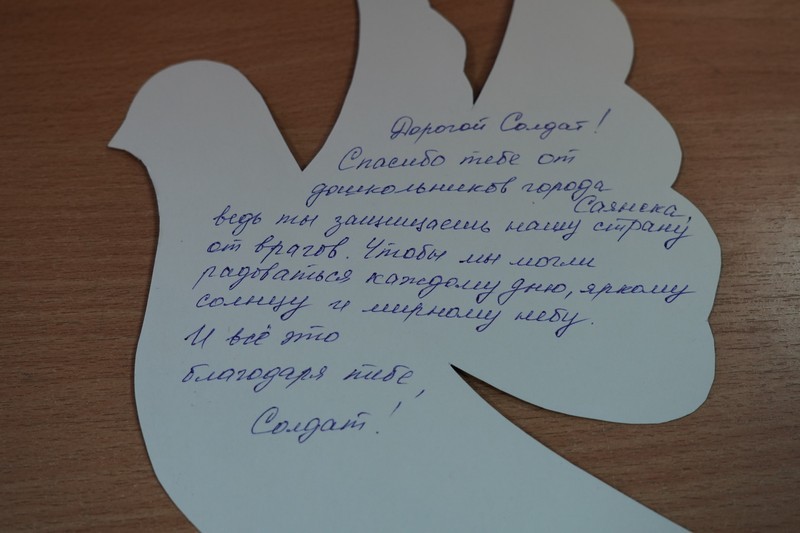 Дорогой Солдат!
Спасибо тебе от
дошкольников города
Саянска,
ведь ты защищаешь нашу страну
от врагов. Чтобы мы могли
радоваться каждому дню, яркому
солнцу и мирному небу.
И всё это
благодаря тебе,
Солдат!